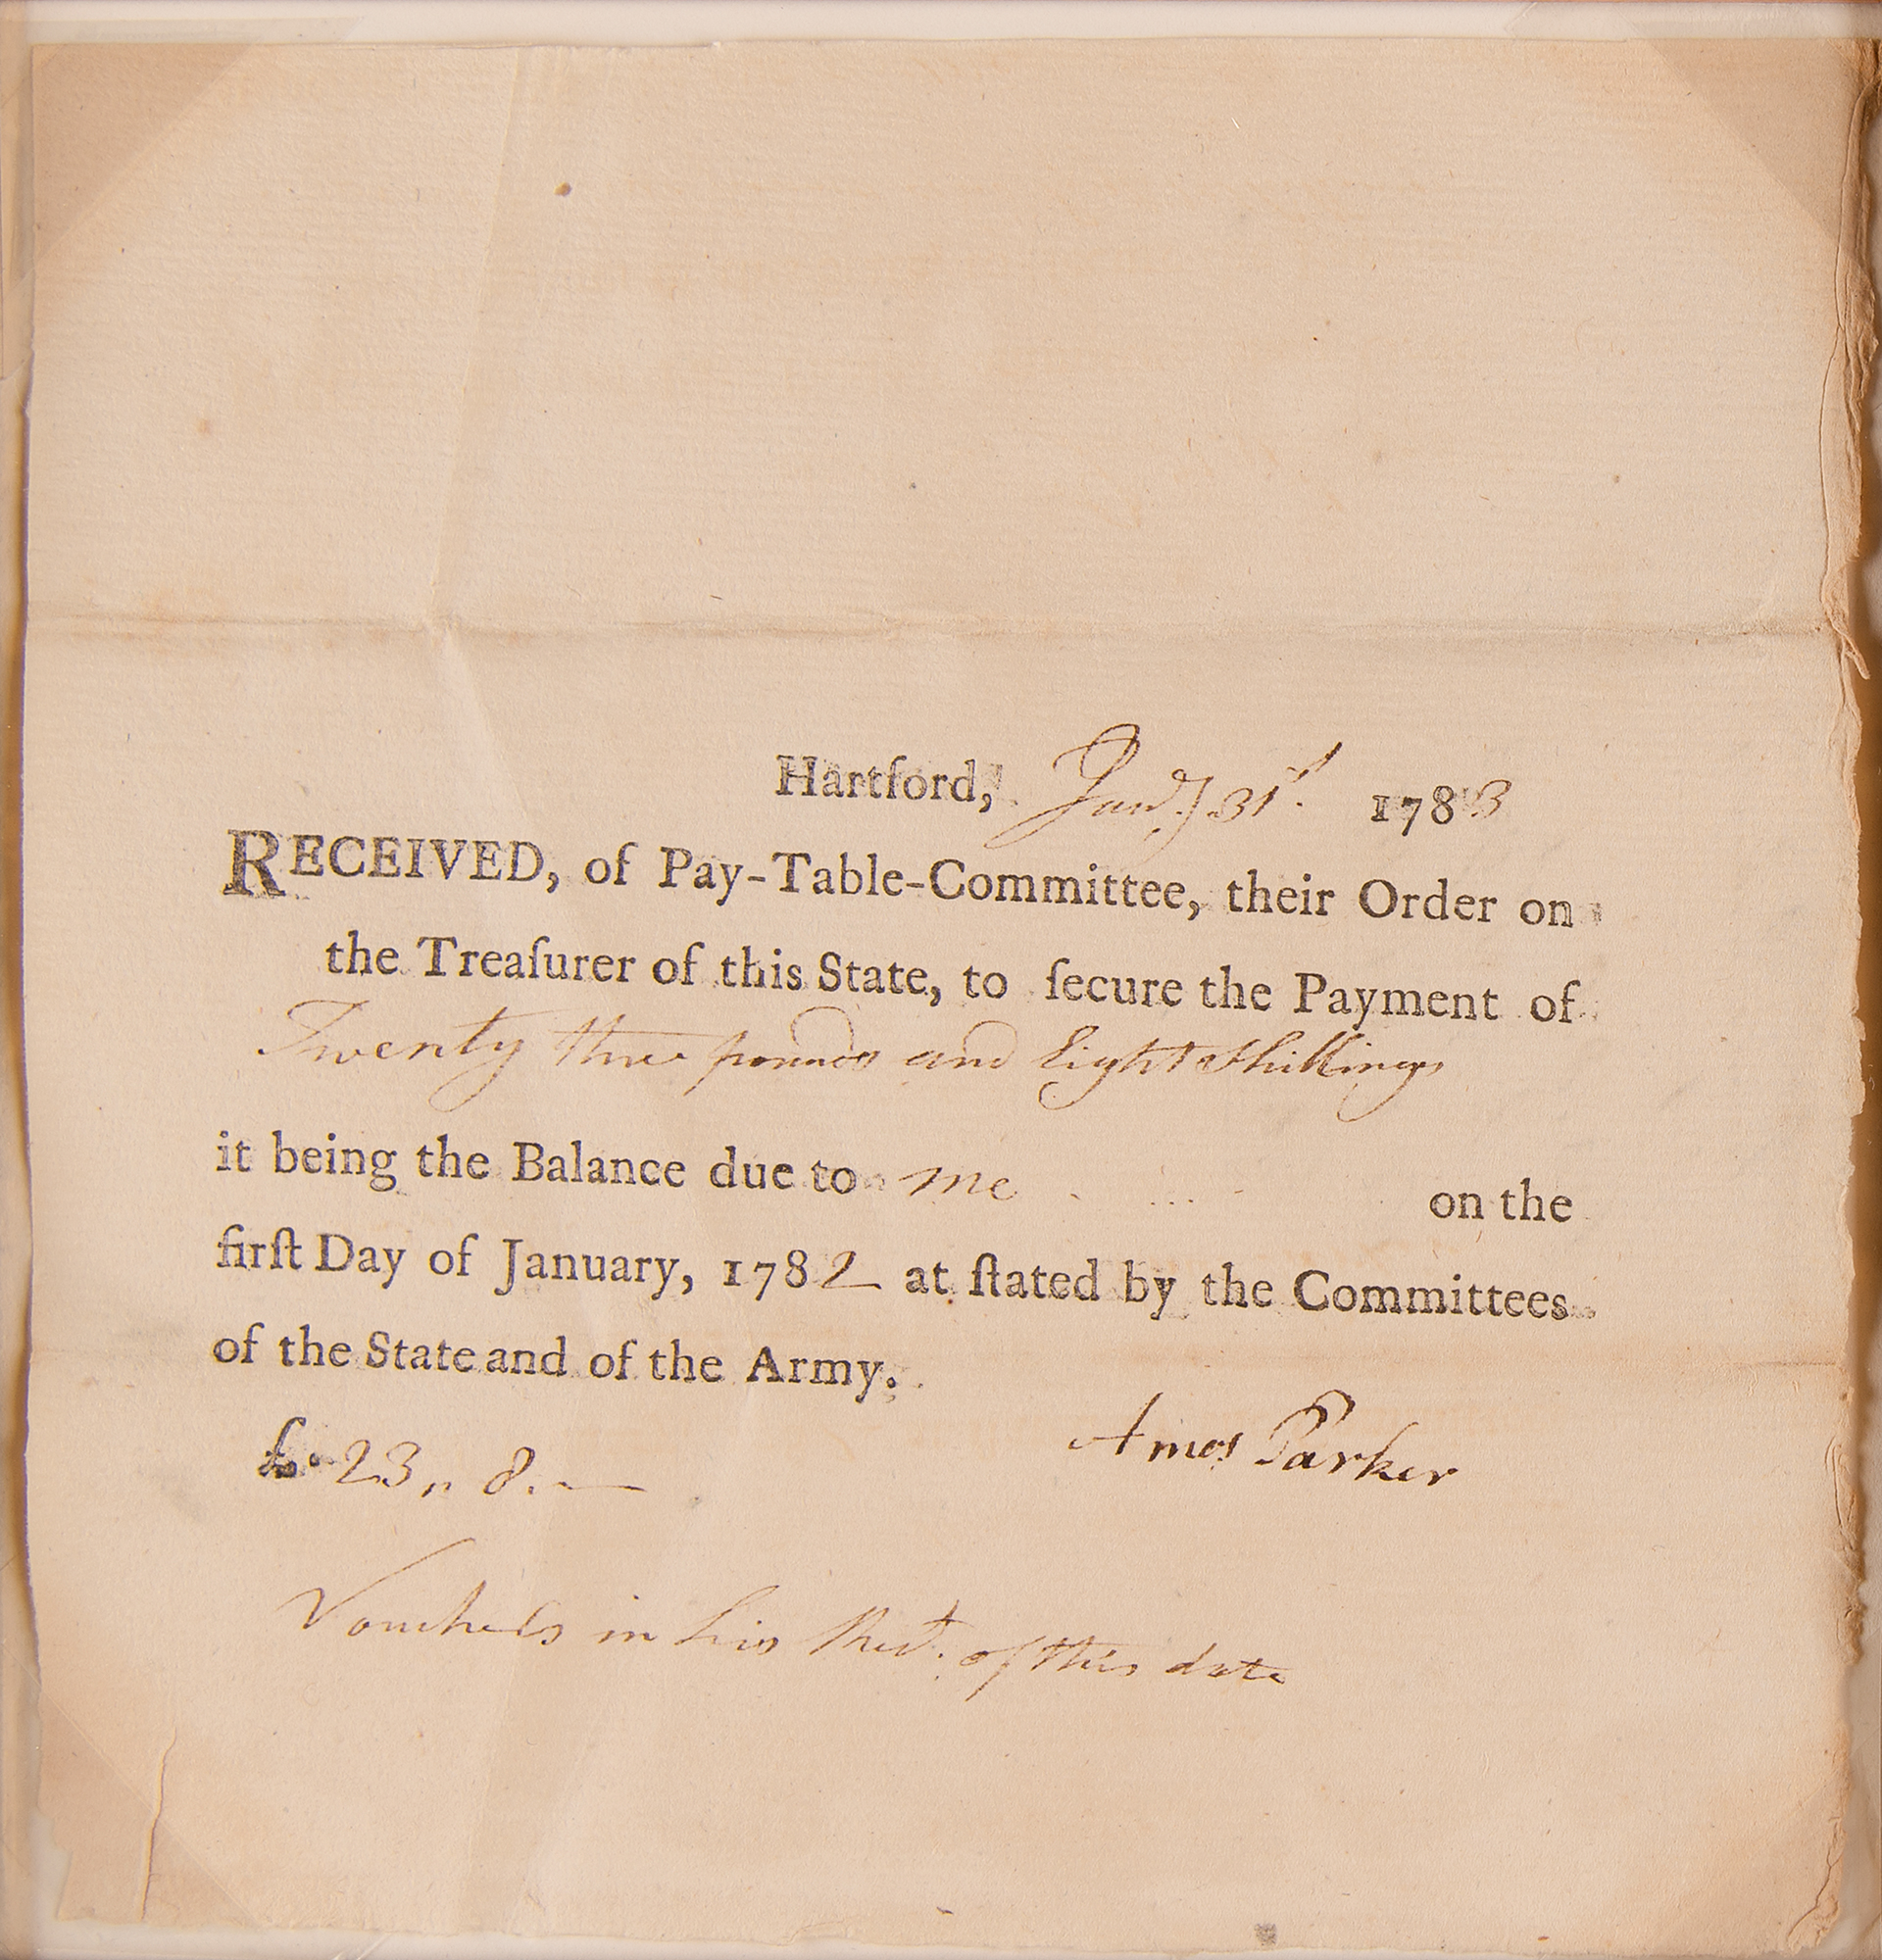 Hartford, Jany 31st. 1783
RECEIVED, of Pay-Table-Committee, their Order on
the Treaſurer of this State, to ſecure the Payment of
Twenty three pounds and Eight Shillings
it being the Balance due to me on the
firſt Day of January, 1782 at ſtated by the Committees
of the State and of the Army.
£. 23,, 8. — Amos Parker
Vouchers in his Rect. of this date